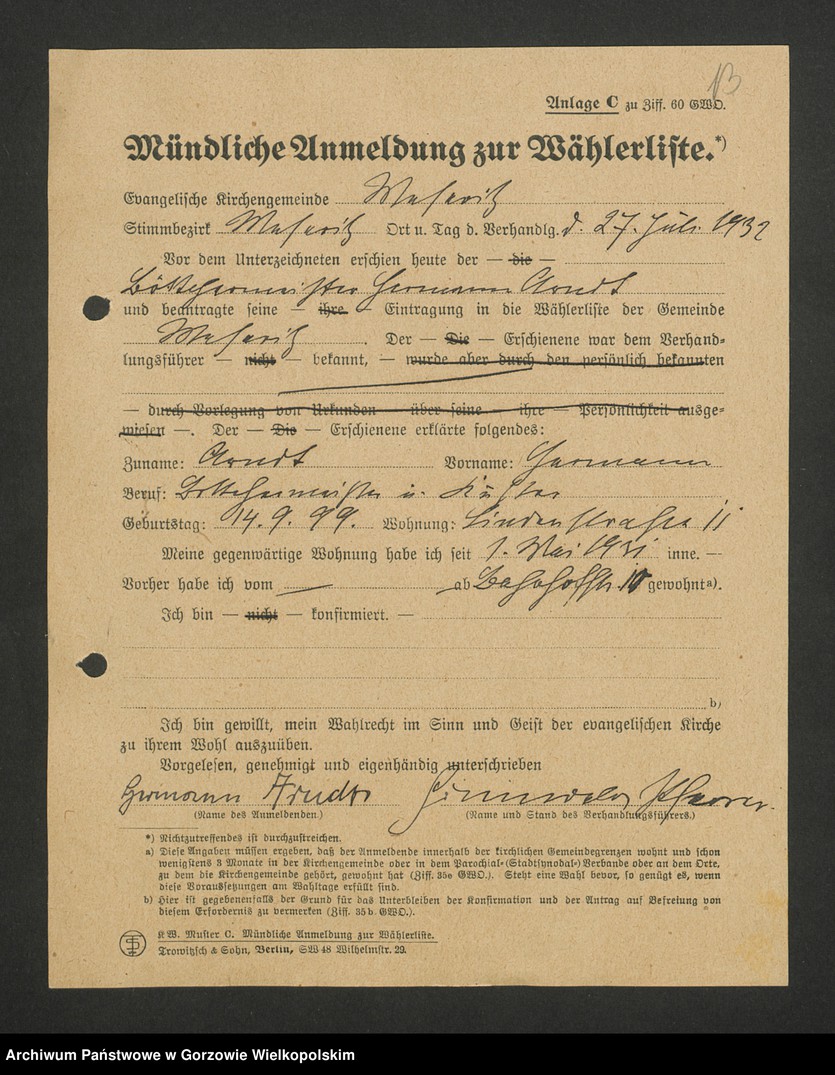 13
Anlage C zu Ziff. 60 GWO.
Mündliche Anmeldung zur Wählerliste.*)
Evangelische Kirchengemeinde Meseritz
Stimmbezirk Meseritz Ort u. Tag d. Verhandlg. d. 27. Juli 1932
Vor dem Unterzeichneten erschien heute der — die —
Böttchermeister Hermann Arndt
und beantragte seine — ihre — Eintragung in die Wählerliste der Gemeinde
Meseritz. Der — Die — Erschienene war dem Verhand-
lungsführer — nicht — bekannt, — wurde aber durch den persönlich bekannten
— durch Vorlegung von Urkunden — über seine — ihre — Persönlichkeit ausge-
wiesen —. Der — Die — Erschienene erklärte folgendes:
Zuname: Arndt Vorname: Hermann
Beruf: Böttchermeister u. Küster
Geburtstag: 14. 9. 99. Wohnung: Lindenstraße 11
Meine gegenwärtige Wohnung habe ich seit 1. Mai 1931 inne. —
Vorher habe ich vom — ab Bahnhofstr. 10 gewohnt a).
Ich bin — nicht — konfirmiert. —
b)
Ich bin gewillt, mein Wahlrecht im Sinn und Geist der evangelischen Kirche
zu ihrem Wohl auszuüben.
Vorgelesen, genehmigt und eigenhändig unterschrieben
Hermann Arndt Pfarrer
(Name des Anmeldenden.) (Name und Stand des Verhandlungsführers.)
*) Nichtzutreffendes ist durchzustreichen.
a) Diese Angaben müssen ergeben, daß der Anmeldende innerhalb der kirchlichen Gemeindegrenzen wohnt und schon
wenigstens 3 Monate in der Kirchengemeinde oder in dem Parochial-(Stadtsynodal-)Verbande oder an dem Orte,
zu dem die Kirchengemeinde gehört, gewohnt hat (Ziff. 35e GWO.). Steht eine Wahl bevor, so genügt es, wenn
diese Voraussetzungen am Wahltage erfüllt sind.
b) Hier ist gegebenenfalls der Grund für das Unterbleiben der Konfirmation und der Antrag auf Befreiung von
diesem Erfordernis zu vermerken (Ziff. 35b. GWO.).
K.W. Muster C. Mündliche Anmeldung zur Wählerliste.
Trowitzsch & Sohn, Berlin, SW 48 Wilhelmstr. 29.
Archiwum Państwowe w Gorzowie Wielkopolskim